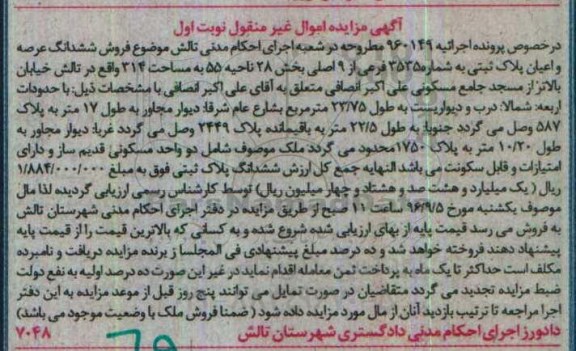 آگهی مزایده اموال غیر منقول نوبت اول
درخصوص پرونده اجرائیه ۹۶۰۱۴۹ مطروحه در شعبه اجرای احکام مدنی تالش موضوع فروش ششدانگ عرصه
و اعیان پلاک ثبتی به شماره ۳۵۳۵ فرعی از ۹ اصلی بخش ۲۸ ناحیه ۵۵ به مساحت ۳۱۴ واقع در تالش خیابان
بالاتر از مسجد جامع مسکونی علی اکبر انصافی متعلق به آقای علی اکبر انصافی با مشخصات ذیل: با حدودات
اربعه: شمالا: درب و دیواریست به طول ۲۳/۷۵ مترمربع بشارع عام شرقا: دیوار مجاور به طول ۱۷ متر به پلاک
۵۸۷ وصل می گردد جنوبا: به طول ۲۲/۵ متر به باقیمانده پلاک ۲۴۴۹ وصل می گردد غربا: دیوار مجاور به
طول ۱۰/۲۰ متر به پلاک ۱۷۵۰ محدود می گردد ملک موصوف شامل دو واحد مسکونی قدیم ساز و دارای
امتیازات و قابل سکونت می باشد النهایه جمع کل ارزش ششدانگ پلاک ثبتی فوق به مبلغ ۱/۸۸۴/۰۰۰/۰۰۰
ریال ( یک میلیارد و هشت صد و هشتاد و چهار میلیون ریال) توسط کارشناس رسمی ارزیابی گردیده لذا مال
موصوف یکشنبه مورخ ۹۶/۹/۵ ساعت ۱۱ صبح از طریق مزایده در دفتر اجرای احکام مدنی شهرستان تالش
به فروش می رسد قیمت پایه از بهای ارزیابی شده شروع شده و به کسانی که بالاترین قیمت را از قیمت پایه
پیشنهاد دهند فروخته خواهد شد و ده درصد مبلغ پیشنهادی فی المجلسا ز برنده مزایده دریافت و نامبرده
مکلف است حداکثر تا یک ماه به پرداخت ثمن معامله اقدام نماید در غیر این صورت ده درصد اولیه به نفع دولت
ضبط مزایده تجدید می گردد متقاضیان در صورت تمایل می توانند پنج روز قبل از موعد مزایده به این دفتر
اجرا مراجعه تا ترتیب بازدید آنان از مال مورد مزایده داده شود ( ضمنا فروش ملک با وضعیت موجود می باشد)
دادورز اجرای احکام مدنی دادگستری شهرستان تالش ۷۰۴۸